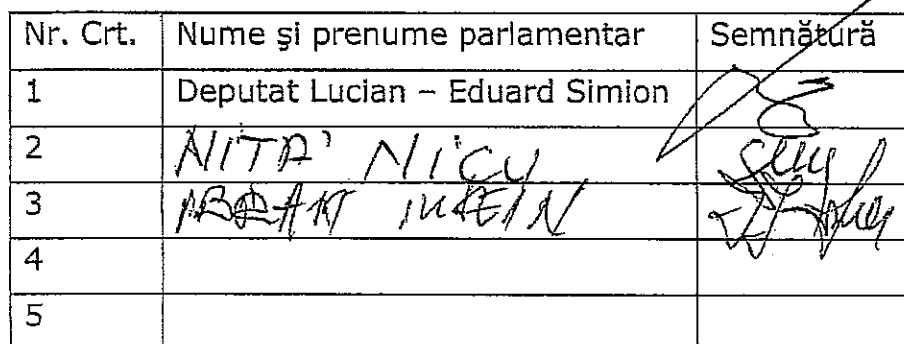 Nr. Crt. Nume şi prenume parlamentar Semnătură
1 Deputat Lucian – Eduard Simion
2 NIŢĂ NICU
3
4
5